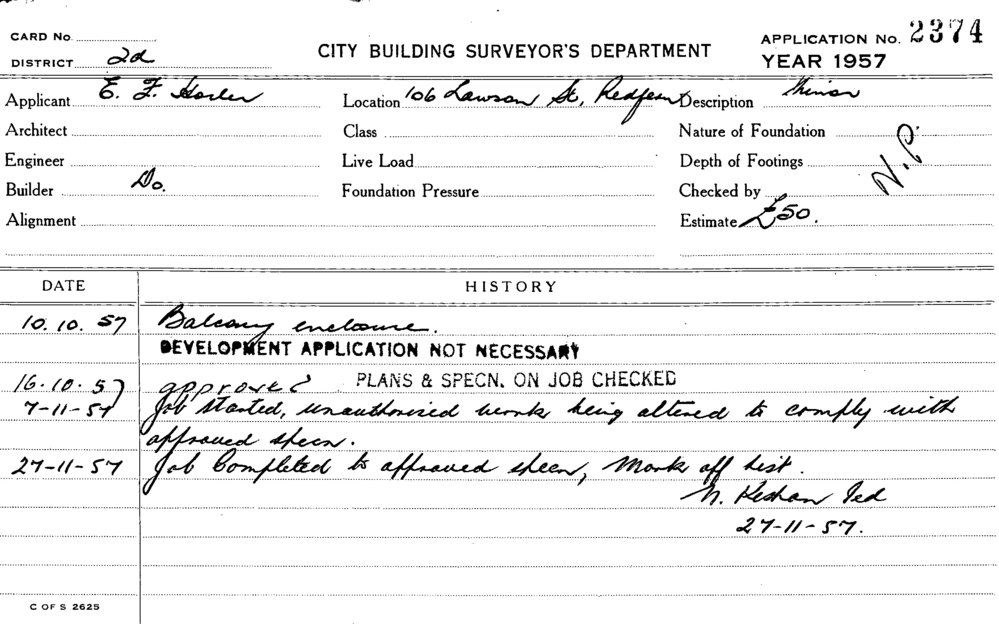 CARD No.
DISTRICT 2d
CITY BUILDING SURVEYOR'S DEPARTMENT
APPLICATION No. 2374
YEAR 1957
Applicant E. F.
Location 106 Lawson St, Redfern
Description Minor
Architect
Class
Nature of Foundation
Engineer
Live Load
Depth of Footings
N.P.
Builder Do.
Foundation Pressure
Checked by
Alignment
Estimate £50.
DATE
HISTORY
10.10.57 Balcony enclosure.
DEVELOPMENT APPLICATION NOT NECESSARY
16.10.57 approved PLANS & SPECN. ON JOB CHECKED
7-11-57 Job started, unauthorised work being altered to comply with
approved specn.
27-11-57 Job Completed to approved specn, Mark off list.
27-11-57.
C OF S 2625